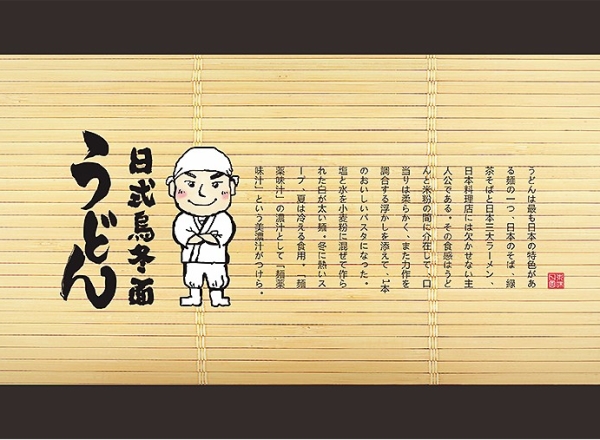 うどん
日式烏冬面
うどんは最も日本の特色があ
る麺の一つ、日本のそば、緑
茶そばと日本三大ラーメン、
日本料理店には欠かせない主
人公である。その食感はうど
んと米粉の間に介在して、口
当りは柔らかく、また力作を
調合する浮かしを添えて、1本
のおいしいパスタになった。
塩と水を小麦粉に混ぜて作ら
れた白が太い麺。冬に熱いス
ープ、夏は冷える食用。「麺
薬味汁」の濃汁として「麺薬
味汁」という美濃汁がつけら。